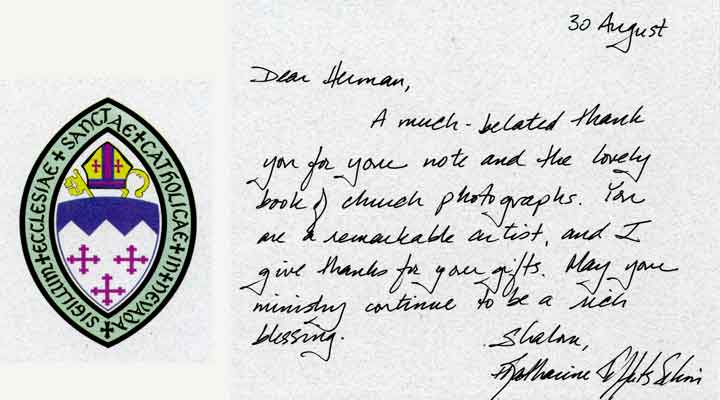 SIGILLUM + ECCLESIAE + SANCTAE + CATHOLICAE + IN + NEVADA +
30 August
Dear Herman,
A much-belated thank
you for your note and the lovely
book of church photographs. You
are a remarkable artist, and I
give thanks for your gifts. May your
ministry continue to be a rich
blessing.
Shalom,
+Katharine Jefferts Schori